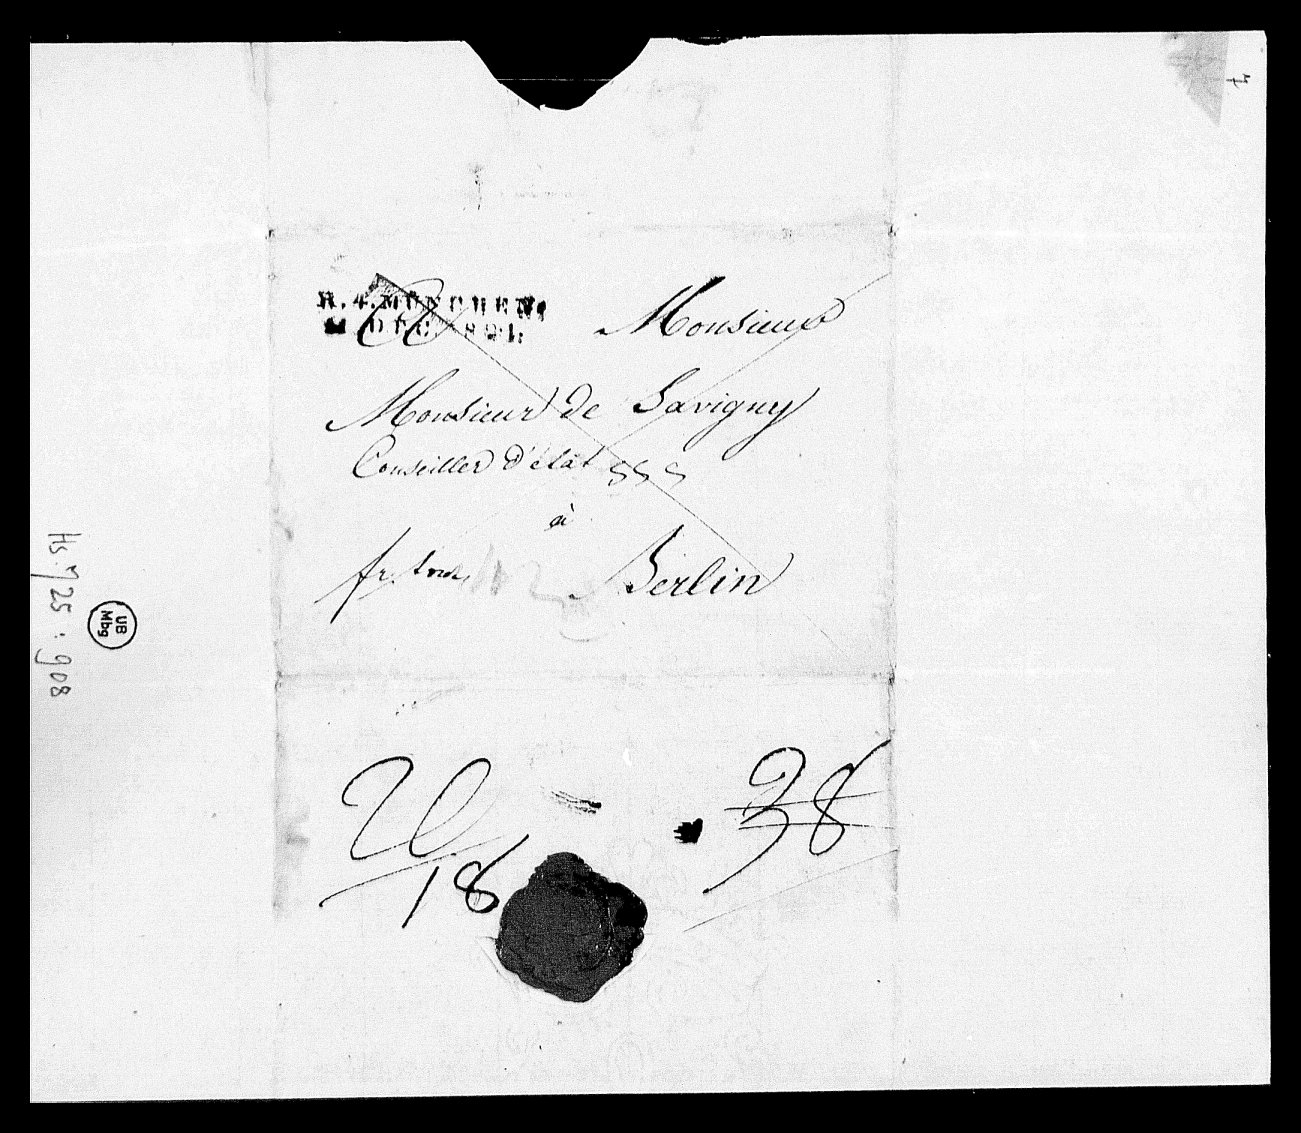 R. 4. MÜNCHEN.
DEC. 821.
Monsieur
Monsieur de Savigny
Conseiller d'état
à
fr. Berlin
20
18
38
Hs. 725 : 908
UB
Mbg